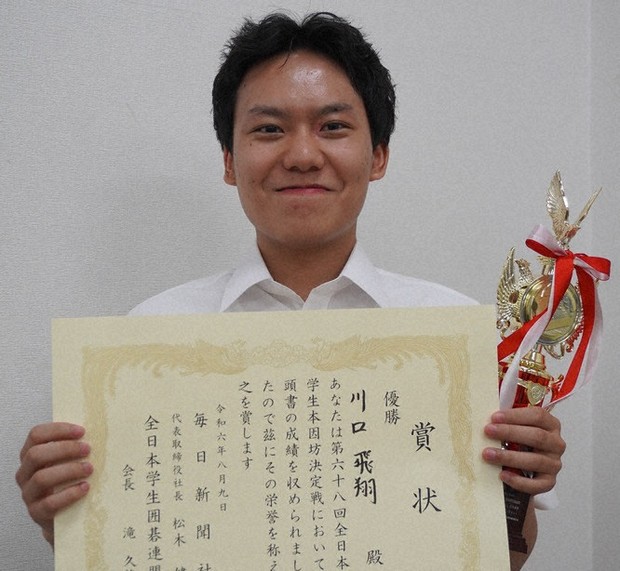 賞状
優勝
川口 飛翔 殿
あなたは第六十八回全日本
学生本因坊決定戦において
頭書の成績を収められまし
たので茲にその栄誉を称え
之を賞します
令和六年八月九日
毎日新聞社
代表取締役社長 松木
全日本学生囲碁連盟
会長 滝 久